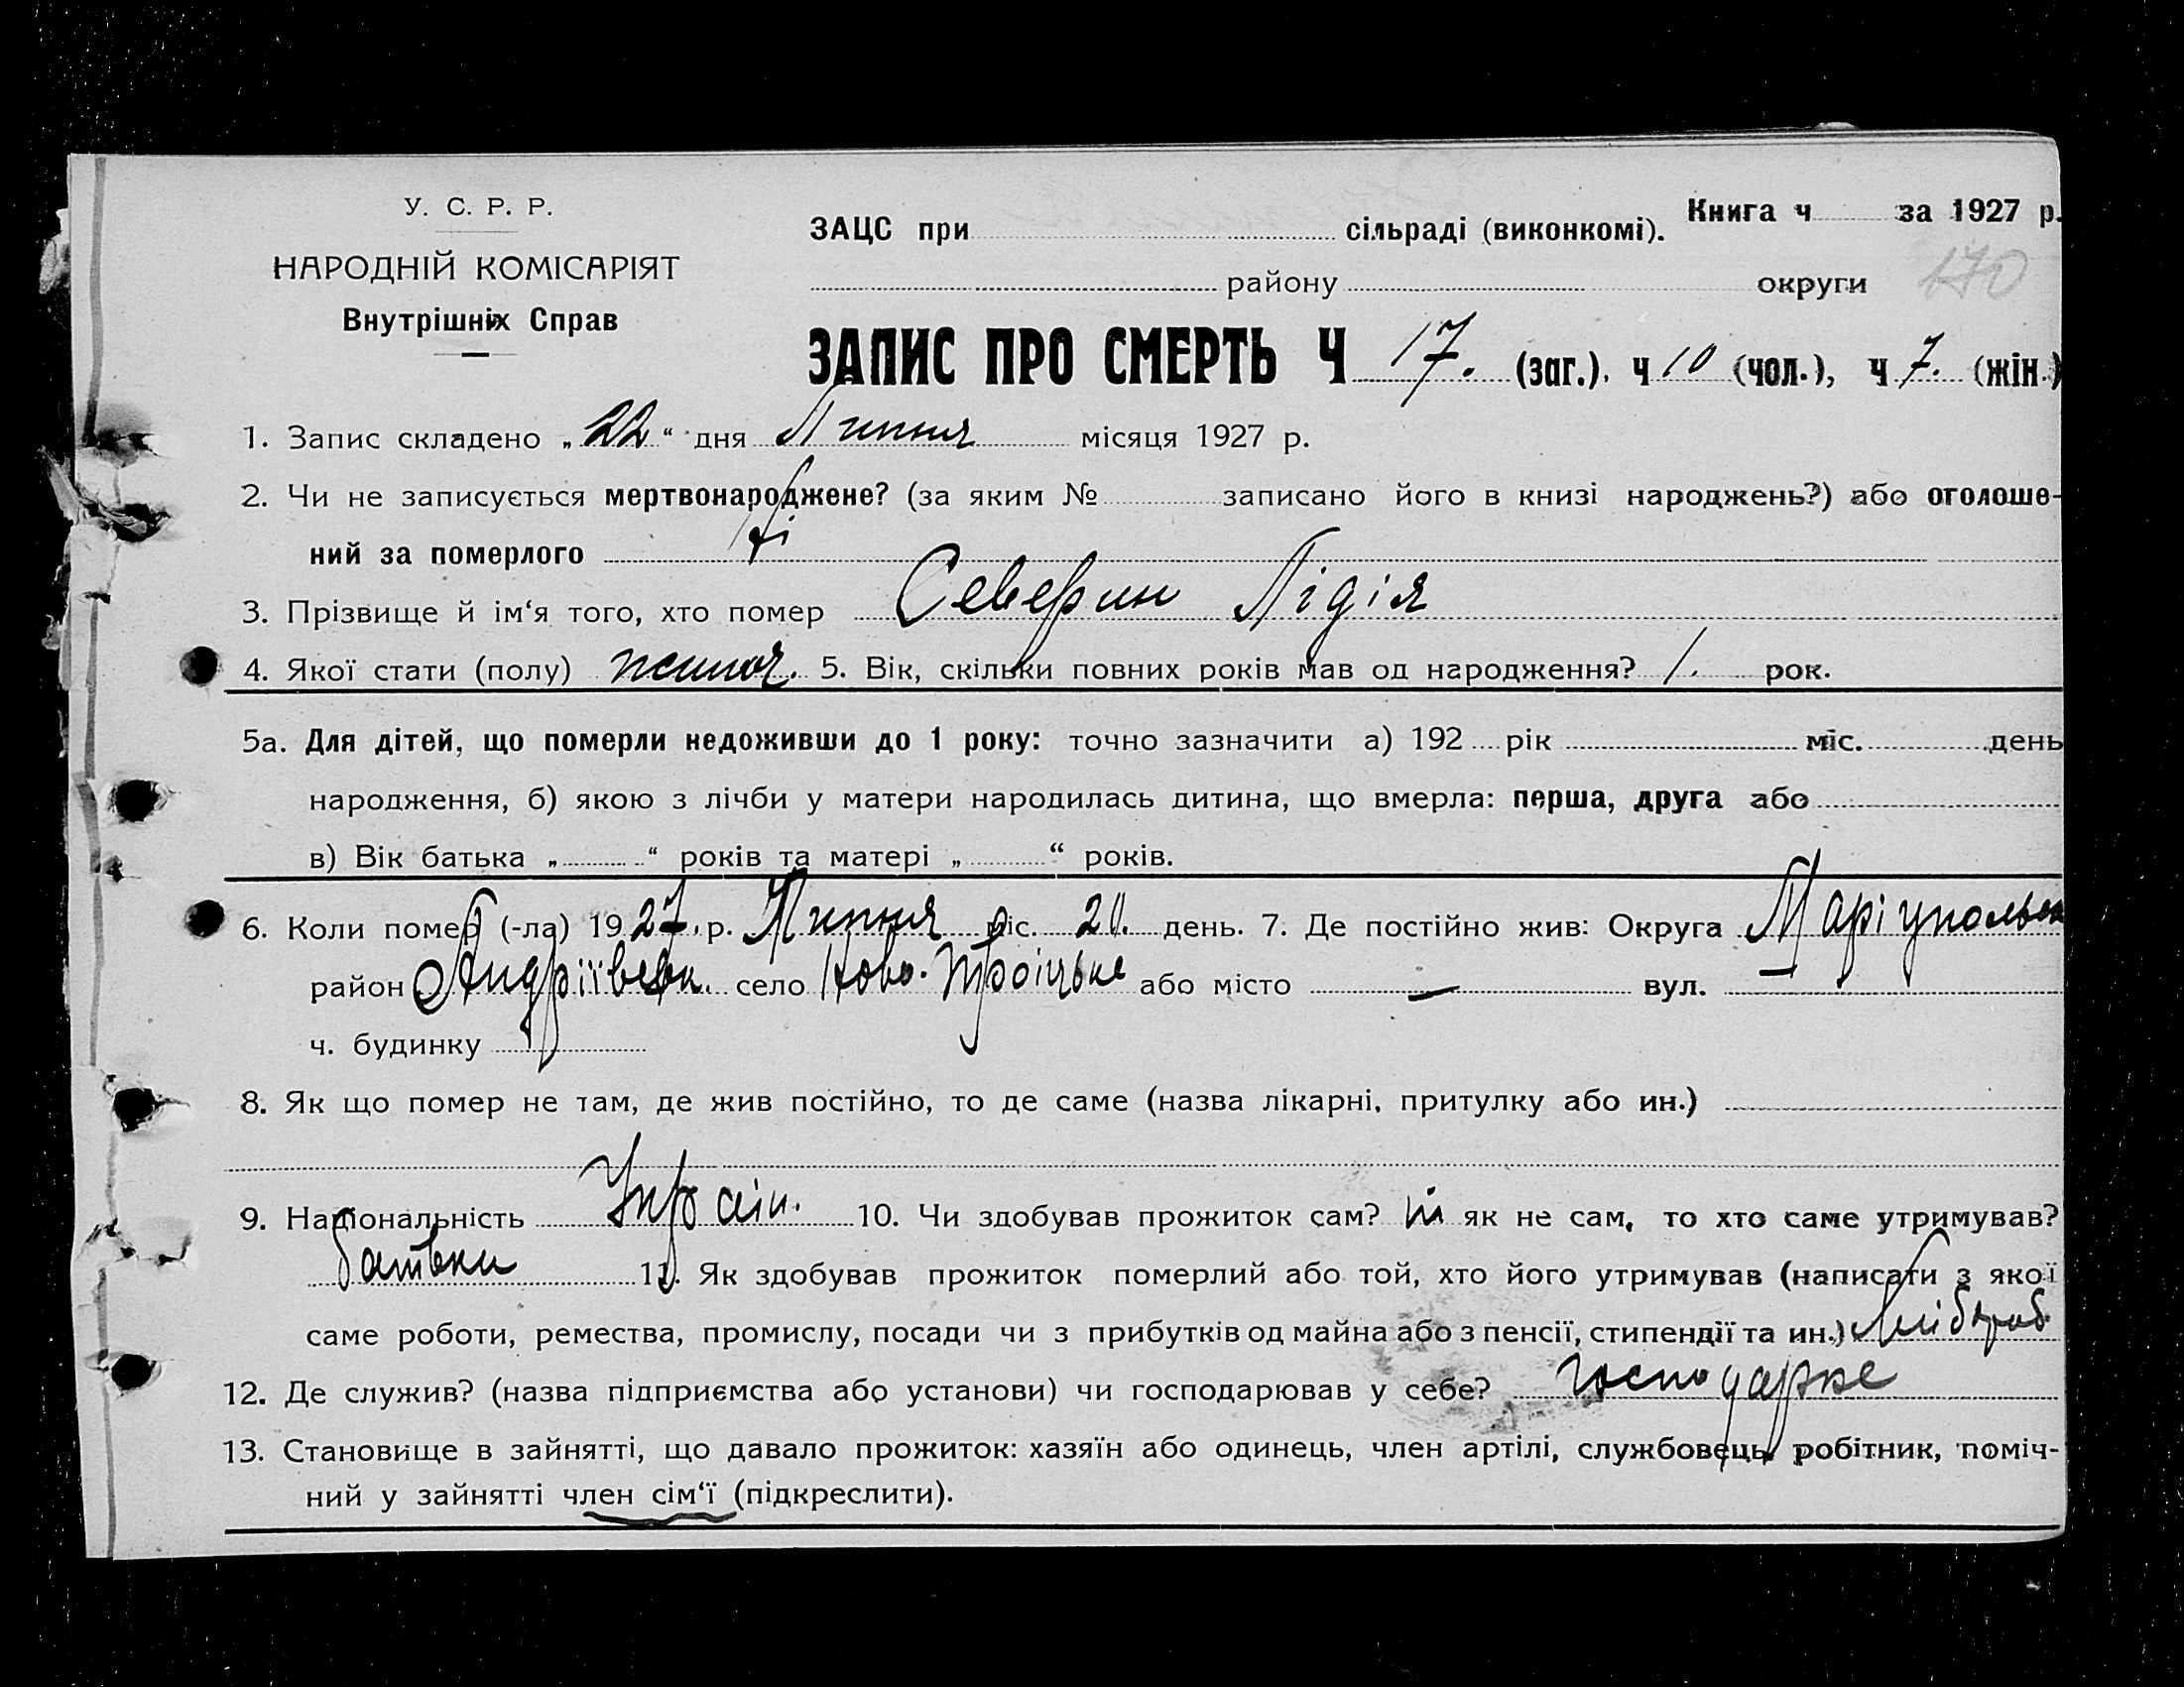 У. С. Р. Р.
НАРОДНІЙ КОМІСАРІЯТ
Внутрішніх Справ
Книга ч за 1927 р.
ЗАЦС при сільраді (виконкомі).
району округи 170
ЗАПИС ПРО СМЕРТЬ Ч 17. (заг.), ч 10 (чол.), ч 7. (жін.)
1. Запис складено „22“ дня Липня місяця 1927 р.
2. Чи не записується мертвонароджене? (за яким № записано його в книзі народжень?) або оголоше-
ний за померлого Ні
3. Прізвище й ім‘я того, хто помер Северин Лідія
4. Якої стати (полу) жіноч. 5. Вік, скільки повних років мав од народження? 1. рок.
5а. Для дітей, що померли недоживши до 1 року: точно зазначити а) 192 рік міс. день
народження, б) якою з лічби у матери народилась дитина, що вмерла: перша, друга або
в) Вік батька „ “ років та матері „ “ років.
6. Коли помер (-ла) 1927. р. Липня міс. день. 7. Де постійно жив: Округа Маріупольск
район Андріївськ. село Ново-Троіцьке або місто — вул.
ч. будинку
8. Як що помер не там, де жив постійно, то де саме (назва лікарні, притулку або ин.)
9. Національність Україн. 10. Чи здобував прожиток сам? ні як не сам, то хто саме утримував?
батьки 11. Як здобував прожиток померлий або той, хто його утримував (написати з якої
саме роботи, ремества, промислу, посади чи з прибутків од майна або з пенсії, стипендії та ин.) хлібороб
12. Де служив? (назва підприємства або установи) чи господарював у себе? господарює
13. Становище в зайнятті, що давало прожиток: хазяїн або одинець, член артілі, службовець, робітник, поміч-
ний у зайнятті член сім‘ї (підкреслити).